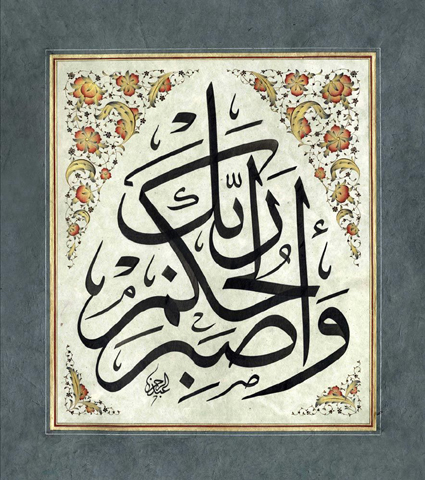 وَاصبِر
لحُكم
رَبّك